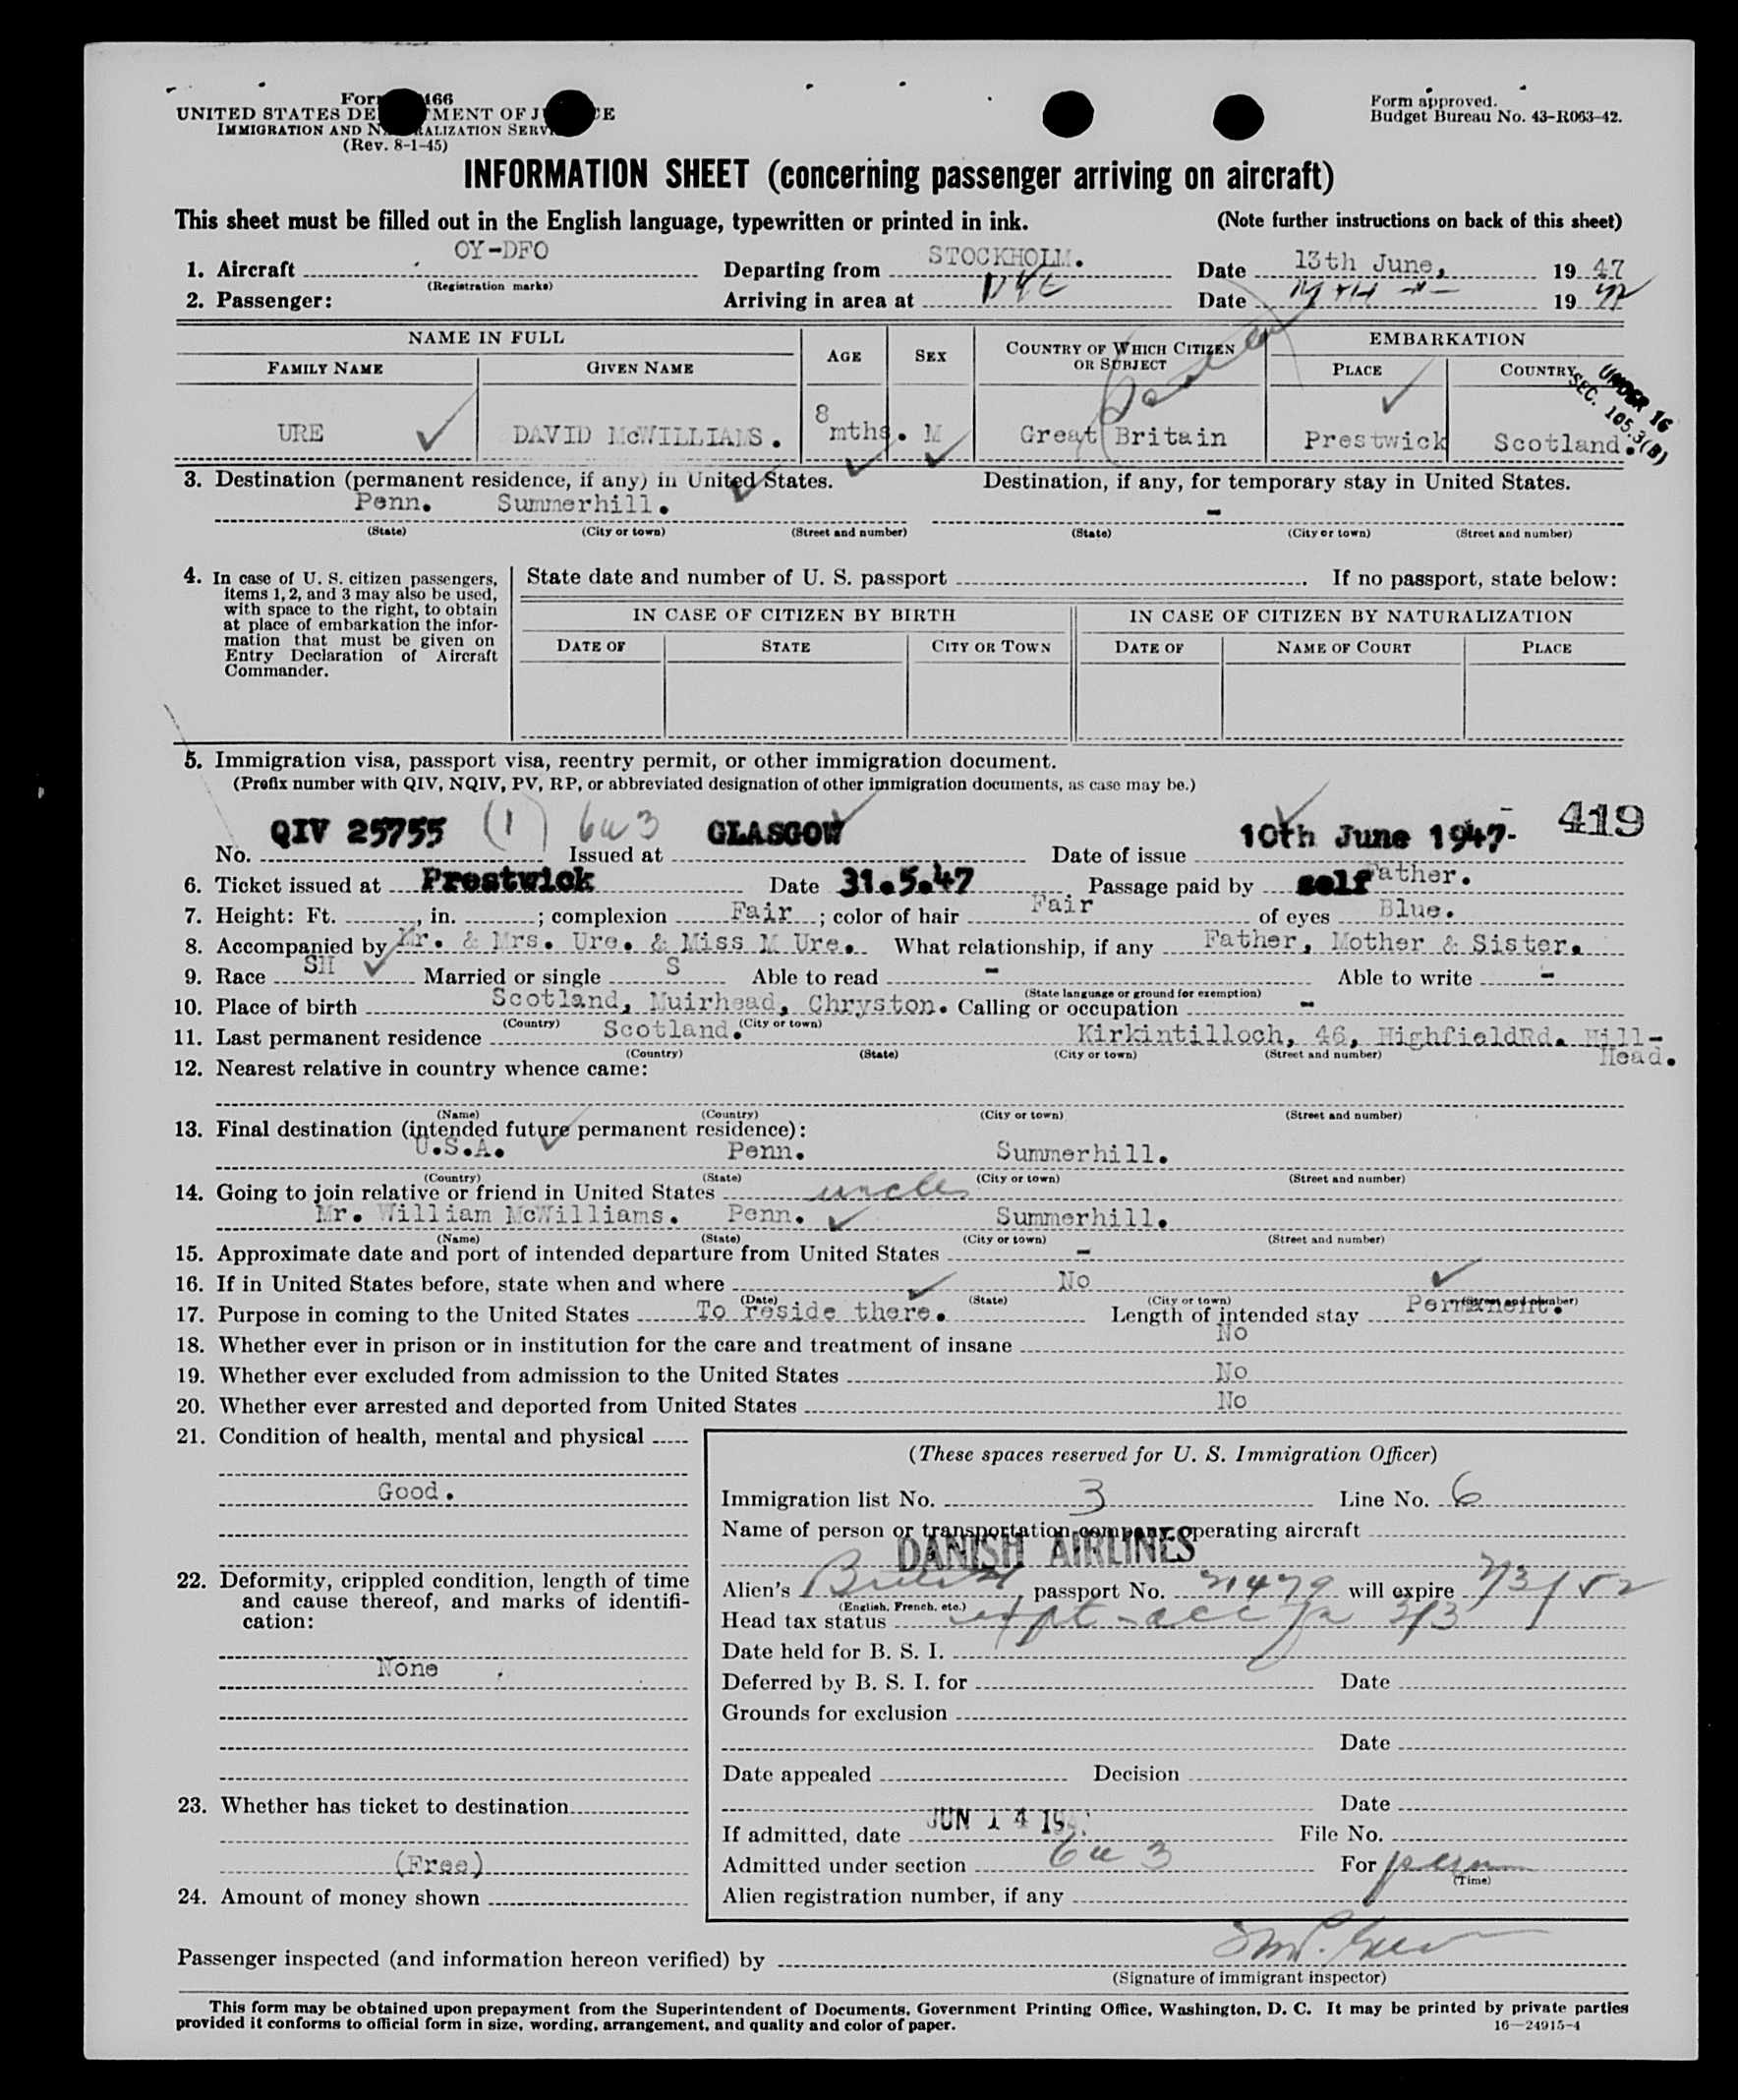 Form 466
UNITED STATES DEPARTMENT OF JUSTICE
IMMIGRATION AND NATURALIZATION SERVICE
(Rev. 8-1-45)
Form approved.
Budget Bureau No. 43-R063-42.
INFORMATION SHEET (concerning passenger arriving on aircraft)
This sheet must be filled out in the English language, typewritten or printed in ink. (Note further instructions on back of this sheet)
1. Aircraft OY-DFO Departing from STOCKHOLM. Date 13th June, 19 47
(Registration marks)
2. Passenger: Arriving in area at NYC Date 19 47
NAME IN FULL AGE SEX COUNTRY OF WHICH CITIZEN OR SUBJECT EMBARKATION
FAMILY NAME GIVEN NAME PLACE COUNTRY
UNDER 16
SEC. 105.3(B)
URE DAVID McWILLIAMS. 8 mths. M Great Britain Prestwick Scotland.
3. Destination (permanent residence, if any) in United States. Destination, if any, for temporary stay in United States.
Penn. Summerhill. -
(State) (City or town) (Street and number) (State) (City or town) (Street and number)
4. In case of U. S. citizen passengers, items 1, 2, and 3 may also be used, with space to the right, to obtain at place of embarkation the information that must be given on Entry Declaration of Aircraft Commander.
State date and number of U. S. passport . If no passport, state below:
IN CASE OF CITIZEN BY BIRTH IN CASE OF CITIZEN BY NATURALIZATION
DATE OF STATE CITY OR TOWN DATE OF NAME OF COURT PLACE
5. Immigration visa, passport visa, reentry permit, or other immigration document.
(Prefix number with QIV, NQIV, PV, RP, or abbreviated designation of other immigration documents, as case may be.)
419
No. QIV 25755 (1) 6a3 Issued at GLASGOW Date of issue 10th June 1947-
6. Ticket issued at Prestwick Date 31.5.47 Passage paid by self Father.
7. Height: Ft. , in. ; complexion Fair ; color of hair Fair of eyes Blue.
8. Accompanied by Mr. & Mrs. Ure. & Miss M Ure. What relationship, if any Father, Mother & Sister.
9. Race SH Married or single S Able to read - Able to write -
(State language or ground for exemption)
10. Place of birth Scotland, Muirhead, Chryston. Calling or occupation -
(Country) (City or town)
11. Last permanent residence Scotland. Kirkintilloch, 46, HighfieldRd. Hill-
Head.
(Country) (State) (City or town) (Street and number)
12. Nearest relative in country whence came:
(Name) (Country) (City or town) (Street and number)
13. Final destination (intended future permanent residence):
U.S.A. Penn. Summerhill.
(Country) (State) (City or town) (Street and number)
14. Going to join relative or friend in United States uncle
Mr. William McWilliams. Penn. Summerhill.
(Name) (State) (City or town) (Street and number)
15. Approximate date and port of intended departure from United States -
16. If in United States before, state when and where No
(Date) (State) (City or town) (Street and number)
17. Purpose in coming to the United States To reside there. Length of intended stay Permanent.
18. Whether ever in prison or in institution for the care and treatment of insane No
19. Whether ever excluded from admission to the United States No
20. Whether ever arrested and deported from United States No
21. Condition of health, mental and physical
Good.
22. Deformity, crippled condition, length of time and cause thereof, and marks of identification:
None
23. Whether has ticket to destination
(Free)
24. Amount of money shown
(These spaces reserved for U. S. Immigration Officer)
Immigration list No. 3 Line No. 6
Name of person or transportation company operating aircraft
DANISH AIRLINES
Alien's British passport No. 71479 will expire 7/3/52
(English, French, etc.)
Head tax status
Date held for B. S. I.
Deferred by B. S. I. for Date
Grounds for exclusion
Date
Date appealed Decision
Date
If admitted, date JUN 14 194 File No.
Admitted under section 6a3 For perm
(Time)
Alien registration number, if any
Passenger inspected (and information hereon verified) by
(Signature of immigrant inspector)
This form may be obtained upon prepayment from the Superintendent of Documents, Government Printing Office, Washington, D. C. It may be printed by private parties
provided it conforms to official form in size, wording, arrangement, and quality and color of paper. 16—24915-4